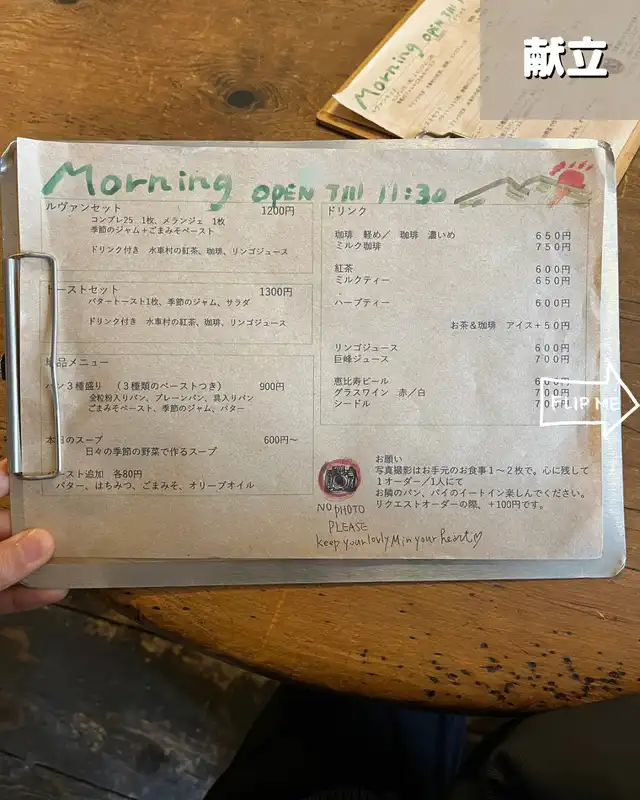 献立
Morning OPEN
Morning OPEN Till 11:30
ルヴァンセット 1200円
コンプレ25 1枚、メランジェ 1枚
季節のジャム+ごまみそペースト
ドリンク付き 水車村の紅茶、珈琲、リンゴジュース
ーストセット 1300円
バタートースト1枚、季節のジャム、サラダ
ドリンク付き 水車村の紅茶、珈琲、リンゴジュース
品メニュー
パン3種盛り (3種類のペーストつき) 900円
全粒粉入りパン、プレーンパン、具入りパン
ごまみそペースト、季節のジャム、バター
本日のスープ 600円~
日々の季節の野菜で作るスープ
ースト追加 各80円
バター、はちみつ、ごまみそ、オリーブオイル
ドリンク
珈琲 軽め/ 珈琲 濃いめ 650円
ミルク珈琲 750円
紅茶 600円
ミルクティー 650円
ハーブティー 600円
お茶&珈琲 アイス+50円
リンゴジュース 600円
巨峰ジュース 700円
恵比寿ビール
グラスワイン 赤/白
シードル
FLIP ME
お願い
写真撮影はお手元のお食事1~2枚で。心に残して
1オーダー/1人にて
お隣のパン、パイのイートイン楽しんでください。
リクエストオーダーの際、+100円です。
NO PHOTO
PLEASE
keep your lovly M in your heart♡